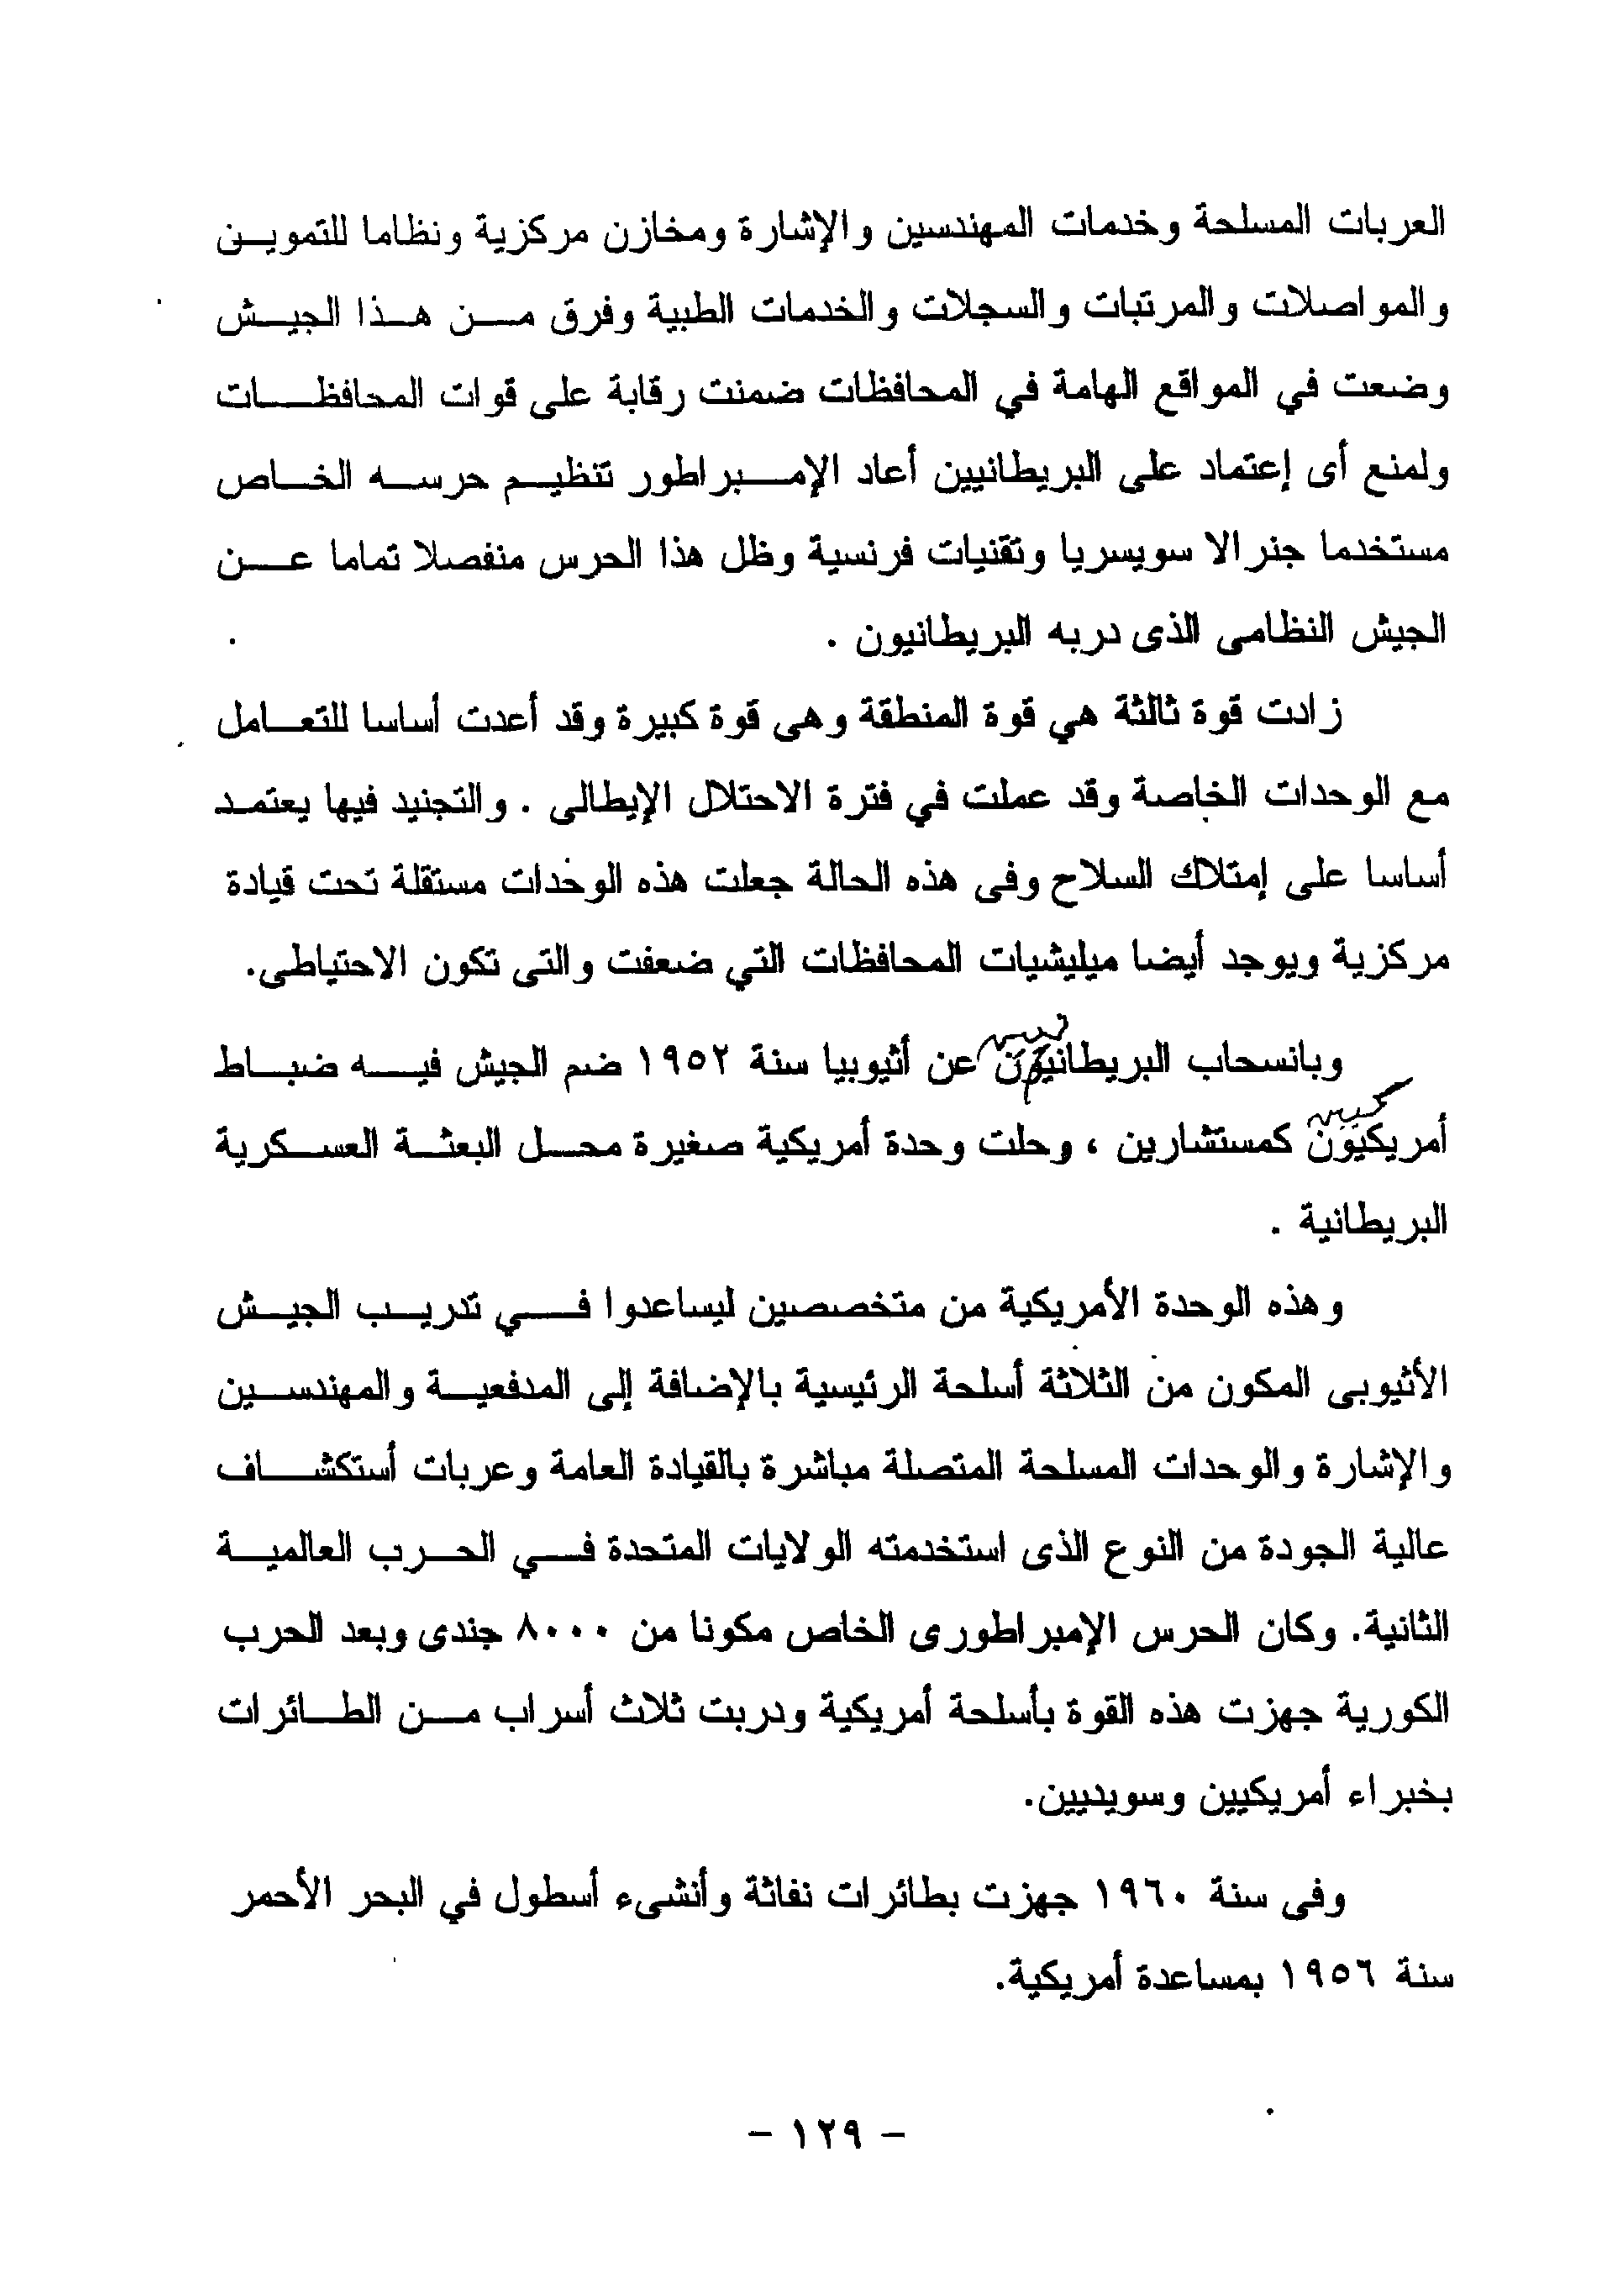 العربات المسلحة وخدمات المهندسين والإشارة ومخازن مركزية ونظاما للتموين
والمواصلات والمرتبات والسجلات والخدمات الطبية وفرق من هذا الجيش
وضعت في المواقع الهامة في المحافظات ضمنت رقابة على قوات المحافظات
ولمنع أى إعتماد على البريطانيين أعاد الإمبراطور تنظيم حرسه الخاص
مستخدما جنرالا سويسريا وتقنيات فرنسية وظل هذا الحرس منفصلا تماما عن
الجيش النظامى الذى دربه البريطانيون .
زادت قوة ثالثة هي قوة المنطقة وهى قوة كبيرة وقد أعدت أساسا للتعامل
مع الوحدات الخاصة وقد عملت في فترة الاحتلال الإيطالى . والتجنيد فيها يعتمد
أساسا على إمتلاك السلاح وفى هذه الحالة جعلت هذه الوحدات مستقلة تحت قيادة
مركزية ويوجد أيضا ميليشيات المحافظات التي ضعفت والتى تكون الاحتياطى.
وبانسحاب البريطانيون عن أثيوبيا سنة ١٩٥٢ ضم الجيش فيه ضباط
أمريكيون كمستشارين ، وحلت وحدة أمريكية صغيرة محل البعثة العسكرية
البريطانية .
وهذه الوحدة الأمريكية من متخصصين ليساعدوا في تدريب الجيش
الأثيوبى المكون من الثلاثة أسلحة الرئيسية بالإضافة إلى المدفعية والمهندسين
والإشارة والوحدات المسلحة المتصلة مباشرة بالقيادة العامة وعربات أستكشاف
عالية الجودة من النوع الذى استخدمته الولايات المتحدة في الحرب العالمية
الثانية. وكان الحرس الإمبراطورى الخاص مكونا من ٨٠٠٠ جندى وبعد الحرب
الكورية جهزت هذه القوة بأسلحة أمريكية ودربت ثلاث أسراب من الطائرات
بخبراء أمريكيين وسويديين.
وفى سنة ١٩٦٠ جهزت بطائرات نفاثة وأنشىء أسطول في البحر الأحمر
سنة ١٩٥٦ بمساعدة أمريكية.
- ١٢٩ -